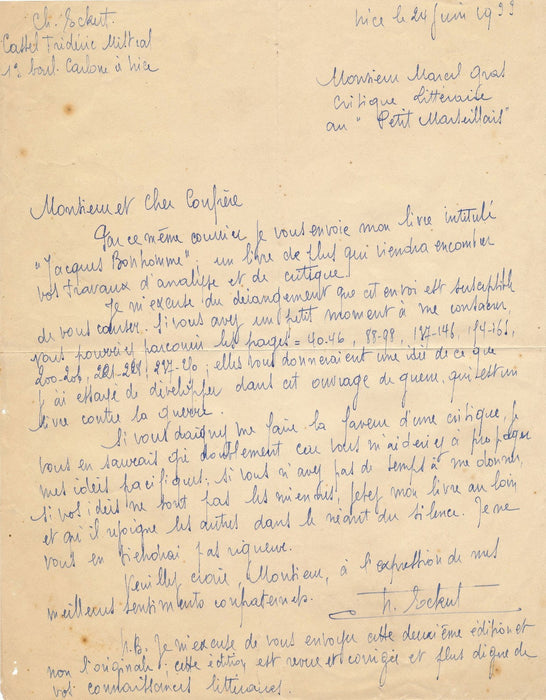 Ch. Eckert.
Castel Frédéric Mistral
12 boul. Carlone à Nice
Nice le 24 Juin 1933
Monsieur Marcel Gras
critique littéraire
au "Petit Marseillais"
Monsieur et Cher Confrère
Par ce même courrier je vous envoie mon livre intitulé
"Jacques Bonhomme"; un livre de plus qui viendra encombrer
vos travaux d'analyse et de critique.
Je m'excuse du dérangement que cet envoi est susceptible
de vous causer. Si vous avez un petit moment à me consacrer,
vous pourriez parcourir les pages = 40-46, 88-98,
elles vous donneraient une idée de ce que
j'ai essayé de développer dans cet ouvrage de guerre, qui est un
livre contre la guerre.
Si vous daignez me faire la faveur d'une critique, je
vous en saurais gré doublement car vous m'aideriez à propager
mes idées pacifiques; si vous n'avez pas de temps à me donner,
si vos idées ne sont pas les miennes, jetez mon livre au loin
et qu'il rejoigne les autres dans le néant du silence. Je ne
vous en tiendrai pas rigueur.
Veuillez croire, Monsieur, à l'expression de mes
meilleurs sentiments confraternels.
Ch. Eckert
N.B. Je m'excuse de vous envoyer cette deuxième édition et
non l'originale; cette édition est revue et corrigée et plus digne de
vos connaissances littéraires.